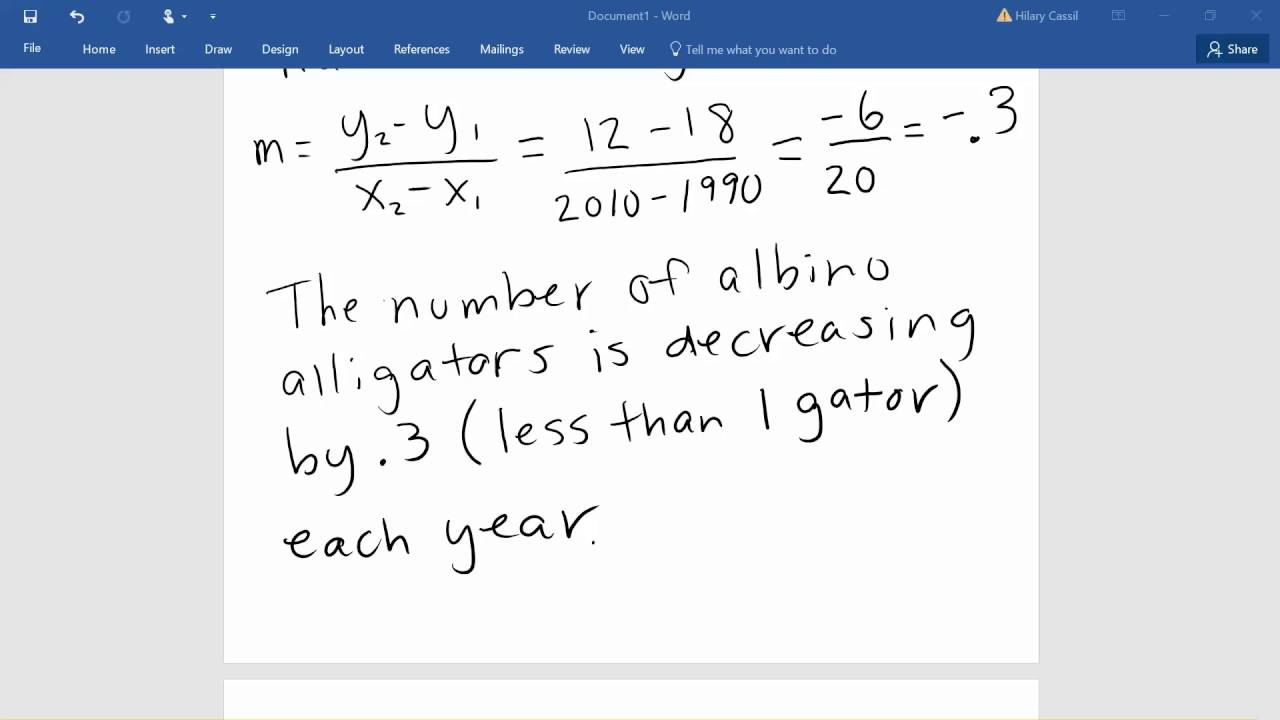 Document1 - Word
Hilary Cassil
File Home Insert Draw Design Layout References Mailings Review View Tell me what you want to do Share
m = y₂ - y₁ / x₂ - x₁ = 12 - 18 / 2010 - 1990 = -6 / 20 = -.3
The number of albino
alligators is decreasing
by .3 (less than 1 gator)
each year.